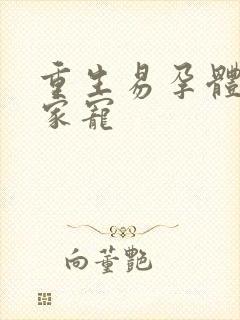 重生易孕體
家寵
向董艷